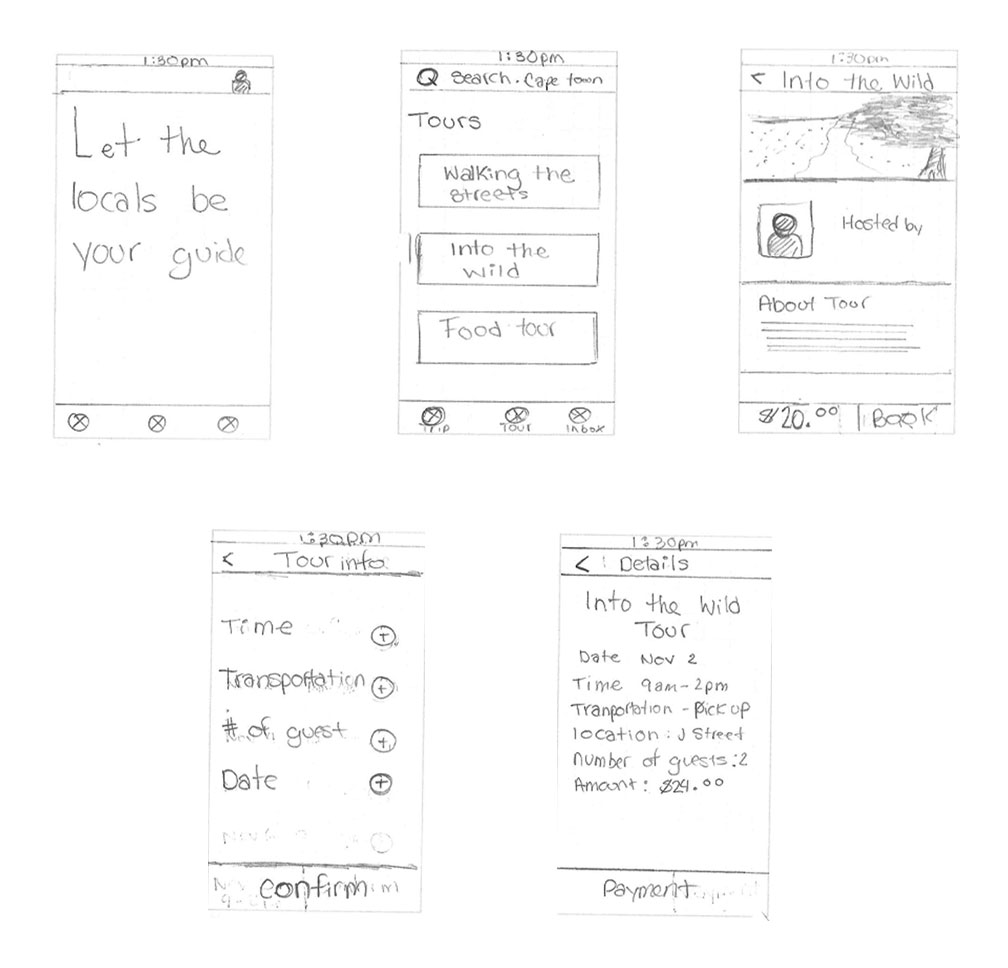 1:30pm
Let the
locals be
your guide
1:30pm
Search. Cape town
Tours
Walking the
streets
Into the
wild
Food tour
Trip Tour Inbox
1:30pm
< Into the Wild
Hosted by
About Tour
$20.00 | Book
1:30pm
< Tour info
Time +
Transportation +
# of guest +
Date +
confirm
1:30pm
< Details
Into the Wild
Tour
Date Nov 2
Time 9am-2pm
Tranportation - Pick up
location : J Street
number of guests :2
Amount : $24.00
Payment